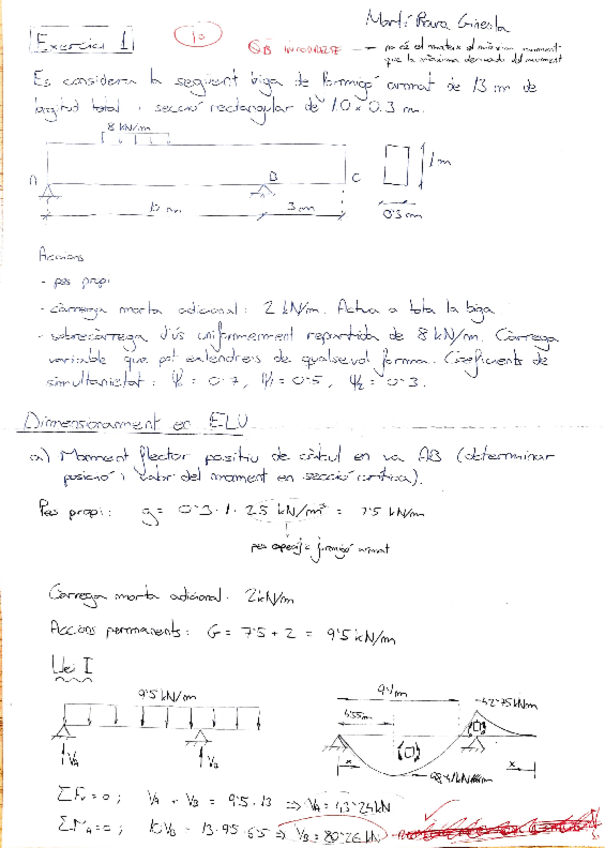 Martí Roura Ginesta
Exercici 1
10
no és el mateix el màxim moment
que la màxima derivada del moment
Es considera la següent viga de formigó armat de 13 m de
longitud total i secció rectangular de 1.0 x 0.3 m.
8 kN/m
A
B
C
1 m
10 m
3 m
0'3 m
Accions
- pes propi
- càrrega morta adicional: 2 kN/m. Actua a tota la biga
- sobrecàrrega d'ús uniformement repartida de 8 kN/m. Càrrega
variable que pot extendre's de qualsevol forma. Coeficients de
simultaneïtat: Ψ₀ = 0'7, Ψ₁ = 0'5, Ψ₂ = 0'3.
Dimensionament en ELU
a) Moment flector positiu de càlcul en va AB (determinar
posició i valor del moment en secció crítica).
Pes propi: g = 0'3 · 1 · 25 kN/m³ = 7'5 kN/m
pes específic formigó armat
Càrrega morta adicional: 2 kN/m
Accions permanents: G = 7'5 + 2 = 9'5 kN/m
Llei I
9'5 kN/m
V_A
V_B
9'1 m
4'55 m
-42'75 kNm
x
x
ΣFv = 0 ; V_A + V_B = 9'5 · 13 ⇒ V_A = 43'24 kN
ΣM_A = 0 ; 10V_B = 13 · 9'5 · 6'5 ⇒ V_B = 80'26 kN